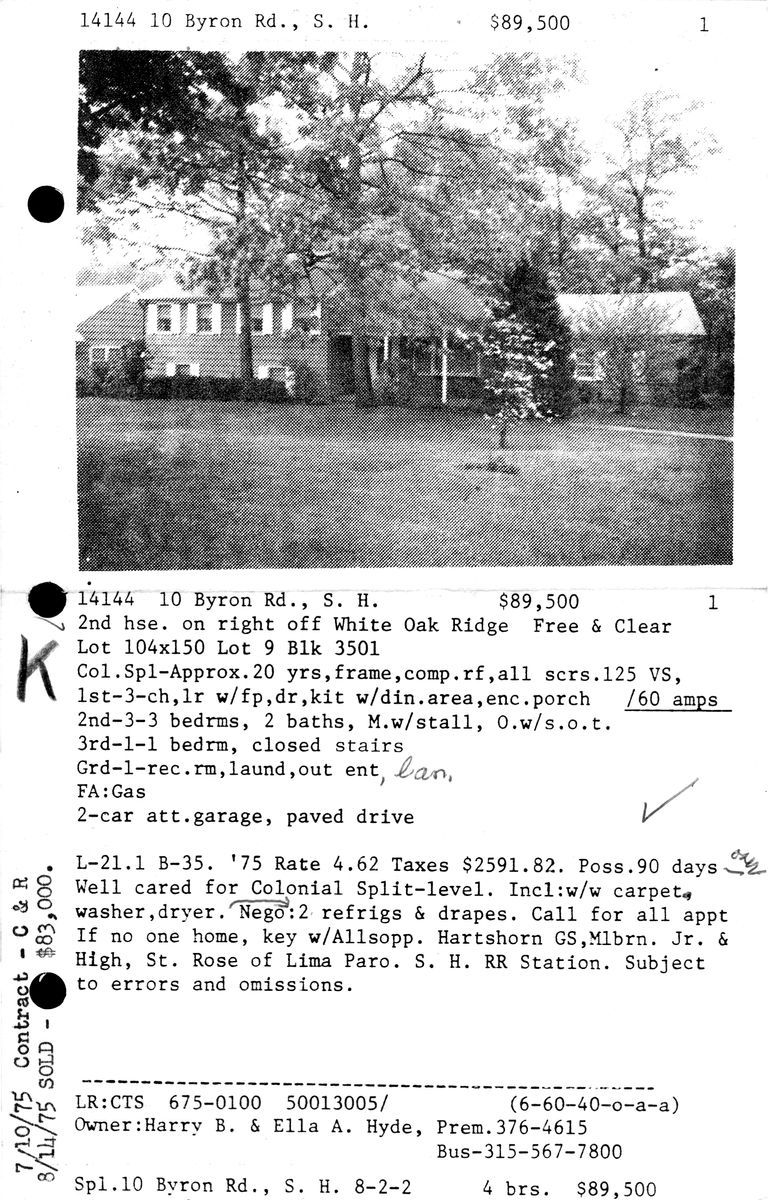 14144 10 Byron Rd., S. H. $89,500 1
14144 10 Byron Rd., S. H. $89,500 1
2nd hse. on right off White Oak Ridge Free & Clear
Lot 104x150 Lot 9 Blk 3501
K
Col.Spl-Approx.20 yrs,frame,comp.rf,all scrs.125 VS,
1st-3-ch,lr w/fp,dr,kit w/din.area,enc.porch /60 amps
2nd-3-3 bedrms, 2 baths, M.w/stall, O.w/s.o.t.
3rd-1-1 bedrm, closed stairs
Grd-1-rec.rm,laund,out ent, lav.
FA:Gas
2-car att.garage, paved drive
L-21.1 B-35. '75 Rate 4.62 Taxes $2591.82. Poss.90 days
Well cared for Colonial Split-level. Incl:w/w carpet,
washer,dryer. Nego:2 refrigs & drapes. Call for all appt
If no one home, key w/Allsopp. Hartshorn GS,Mlbrn. Jr. &
High, St. Rose of Lima Paro. S. H. RR Station. Subject
to errors and omissions.
7/10/75 Contract - C & R
8/14/75 SOLD - $83,000.
LR:CTS 675-0100 50013005/ (6-60-40-o-a-a)
Owner:Harry B. & Ella A. Hyde, Prem.376-4615
Bus-315-567-7800
Spl.10 Byron Rd., S. H. 8-2-2 4 brs. $89,500